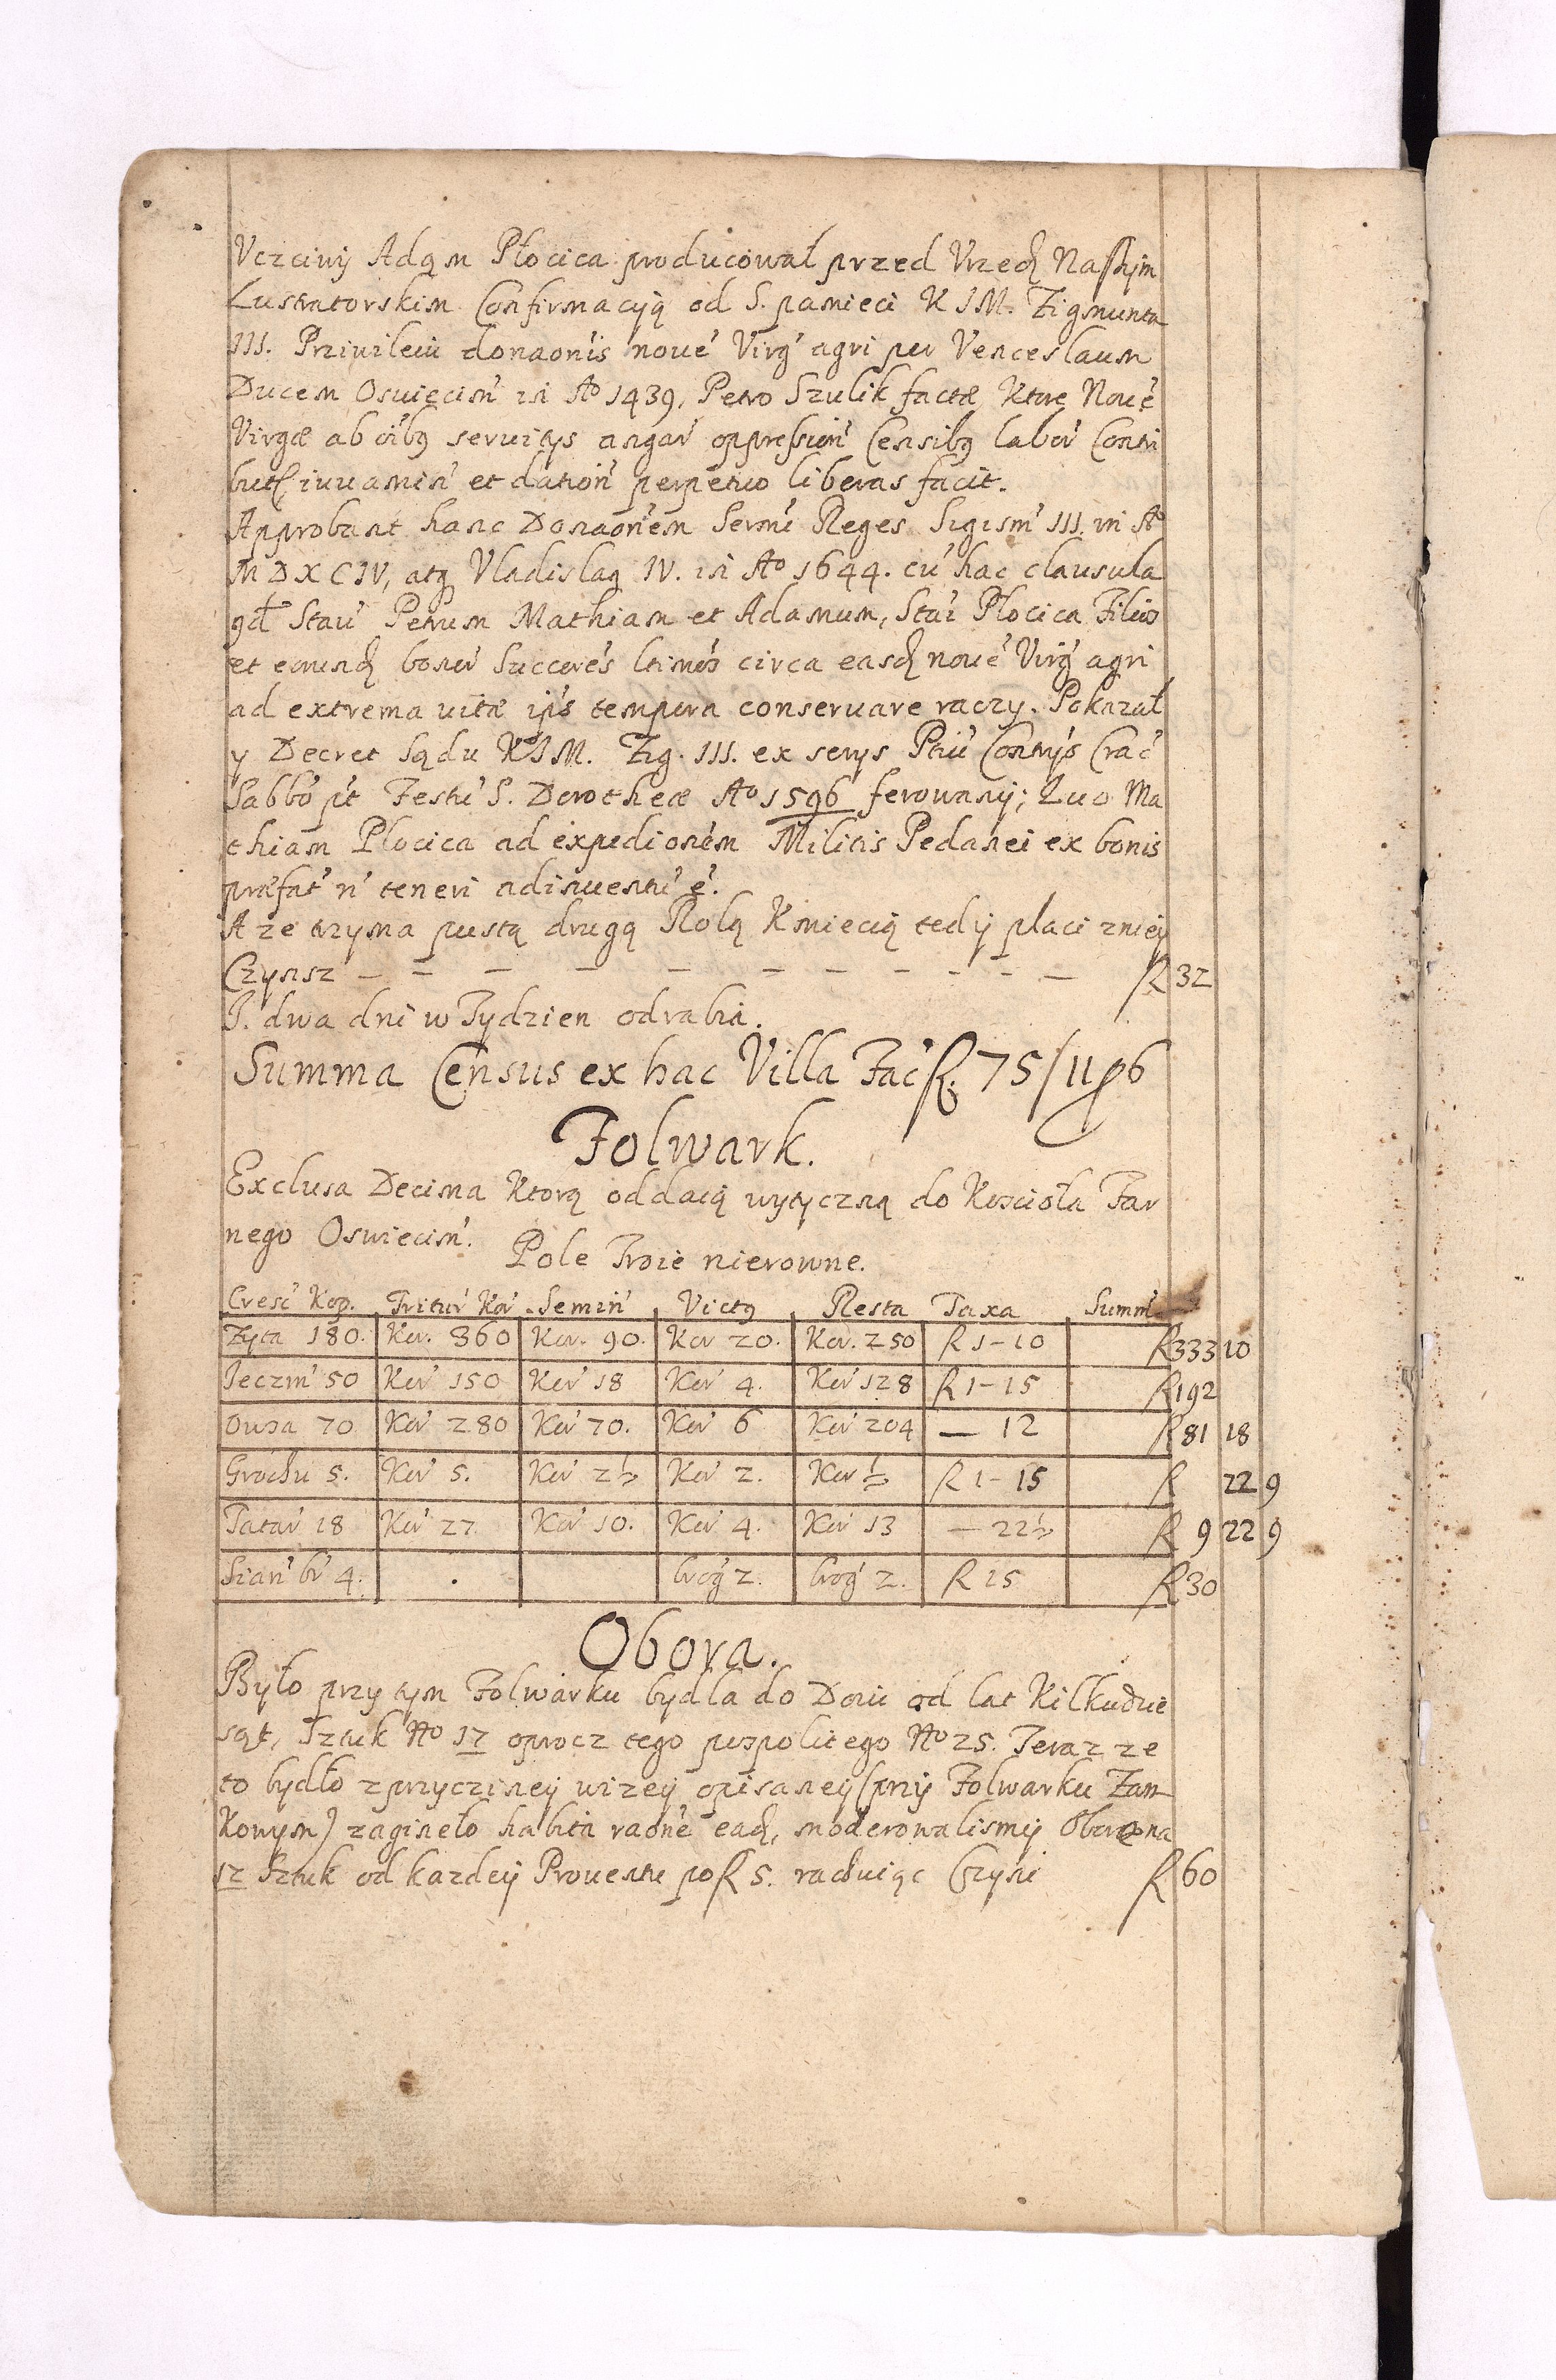 Vczciwÿ Adąm Płocica producował przed Vrzęd Naszÿm
Lustratorskim Confirmacyią od S. pamieci K J M. Zigmunta
III. Priuileiu donaonis noue Virg agri per Venceslaum
Ducem Osuiecim in Aº 1439, Petro Szulik factæ Ktore Noue
Virgæ ab oibg seruitys angar oppression Censibg labor Contri
but, iuuamin et dation perpetuo liberas facit.
Approbant hanc Donaonem Sermi Reges Sigism III. in Aº
M D X C IV, atq Vladislag IV. in Aº 1644. cu hac clausula
qd Stau Petrum Mathiam et Adamum, Stai Plocica Filios
et eorund bonor Succores ltimos circa easd noue Virg agri
ad extrema uitæ ips tempora conseruare raczy. Pokazał
y Decret Sądu K J M. Zig. III. ex serys Ptiu Contys Crac
Sabbo pt Festu S. Dorotheæ Aº 1596 ferowany; Quo Ma
thiam Plocica ad expedionem Militis Pedanei ex bonis
præfat n teneri adinuentu e.
A ze trzyma pustą drugą Rolą Kmiecią tedÿ płaci zniey
Czynsz — — — — — — — — — — — R 32
I. dwa dni w Tydzien odrabia.
Summa Census ex hac Villa Fac R. 75/11 6
Folwark.
Exclusa Decima Ktorą oddaią wytyczną do Koscioła Far
nego Osuiecim.
Pole Troie nierowne.
Cresc Kop. Tritur Kor. Semin Victg Resta Taxa Summ
Zyta 180. Kor. 360 Kor. 90. Kor 20. Kor. 250 R 1-10 R 333 10
Ieczm 50 Kor 150 Kor 18 Kor 4. Kor 128 R 1-15 R 192
Owsa 70 Kor 280 Kor 70. Kor 6 Kor 204 — 12 R 81 18
Grochu 5. Kor 5. Kor 2½ Kor 2. Kor ½ R 1-15 R 22 9
Tatar 18 Kor 27 Kor 10. Kor 4. Kor 13 — 22½ R 9 22 9
Sian br 4. . brog 2. brog 2. R 15 R 30
Obora.
Było przy tym Folwarku bydła do Doiu od lat Kilkudzie
sąt, Sztuk Nº 12 oprocz tego pospolitego Nº 25. Teraz ze
to bydło z przyczyney wizey opisaney (przÿ Folwarku Zam
Kowym) zagineło habita raone ead, moderowalismÿ Oborę na
12 Sztuk od kazdeÿ Prouentu po R 5. rachuiąc Czyni R 60